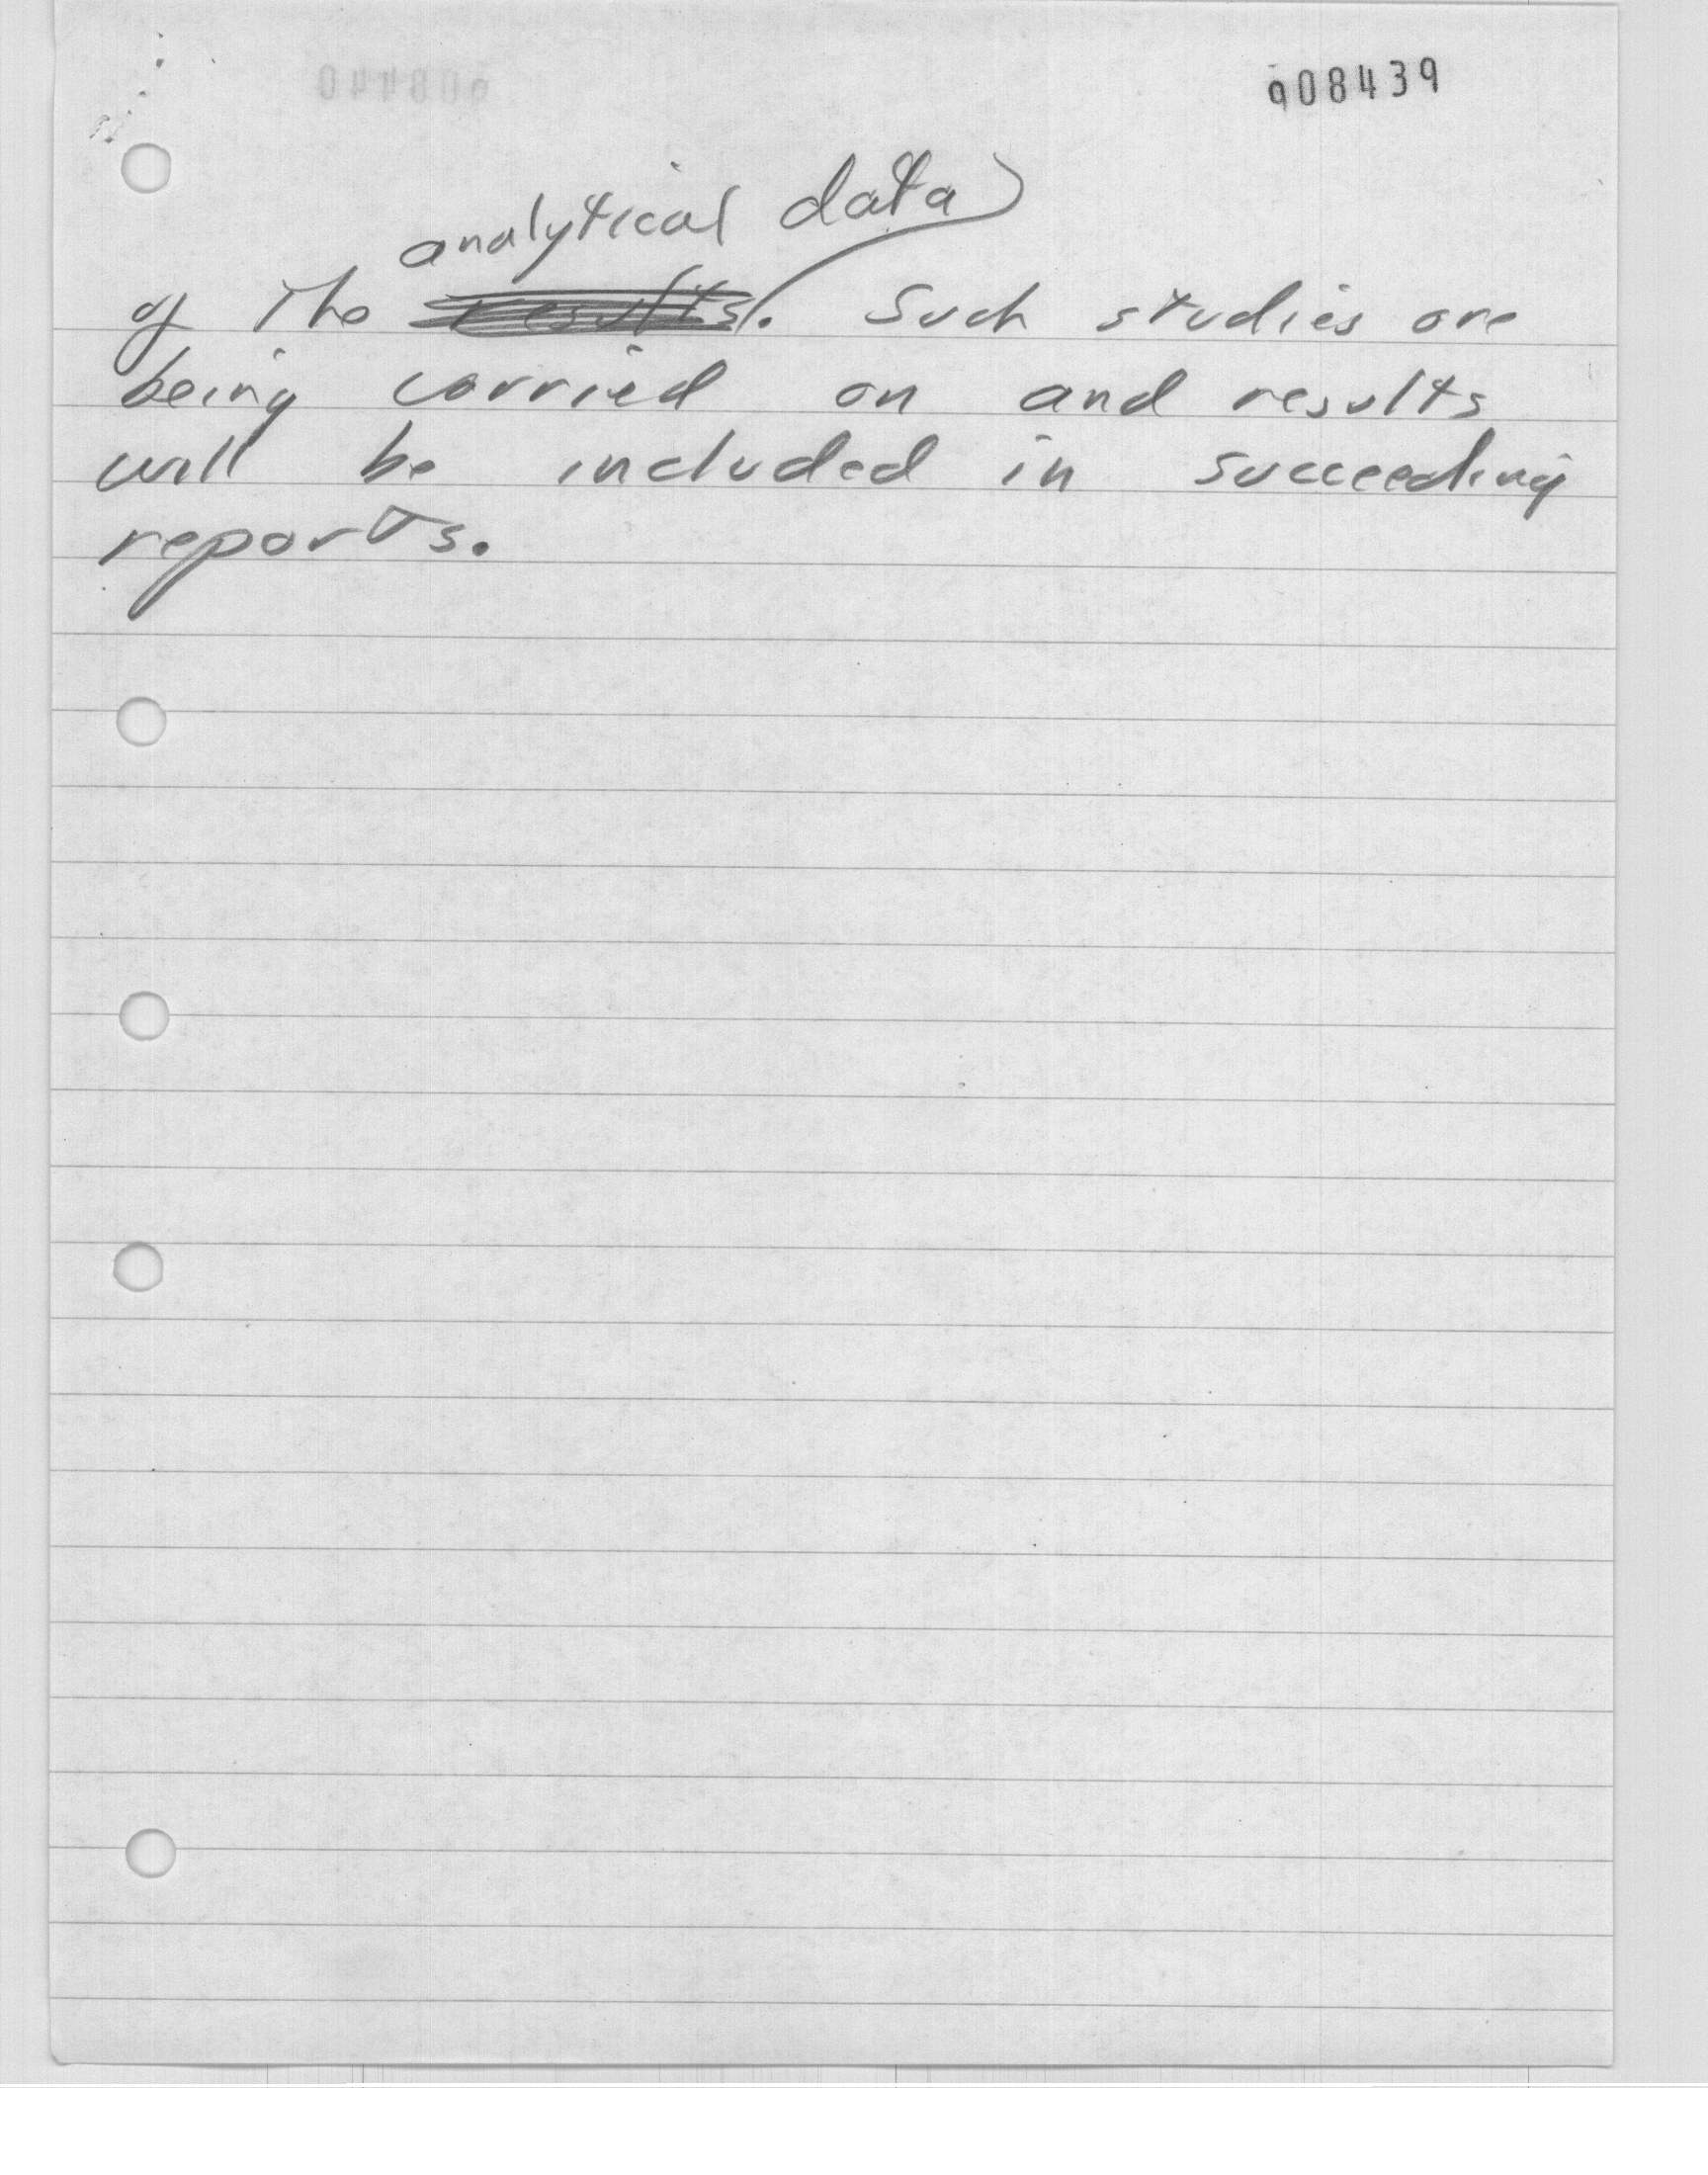 908439
analytical data
of the results. Such studies are
being carried on and results
will be included in succeeding
reports.